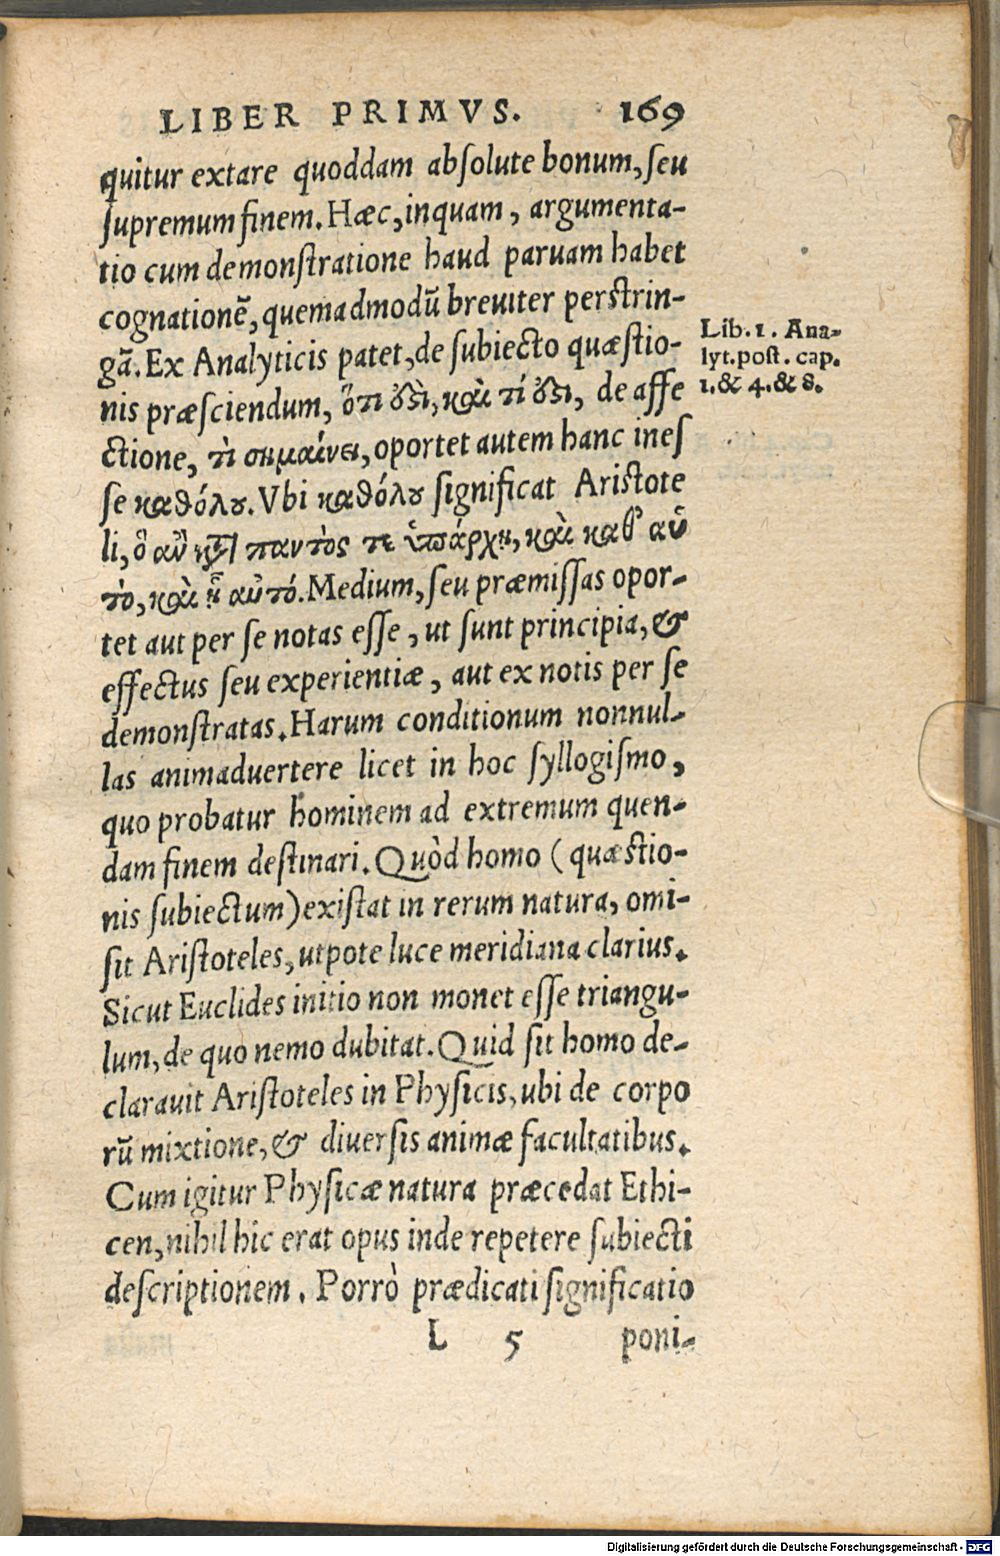 LIBER PRIMVS. 169
quitur extare quoddam absolute bonum, seu
supremum finem. Hæc, inquam, argumenta-
tio cum demonstratione haud paruam habet
cognationē, quemadmodū breuiter perstrin-
gā. Ex Analyticis patet, de subiecto quæstio-
nis præsciendum, ὅτι ὅτὶ, καὶ τί ὅτι, de affe
ctione, τὶ σημαίνει, oportet autem hanc ines
se καθόλου. Vbi καθόλου significat Aristote
li, ὃ αὖ κτ παντὸς τε ὑπάρχῃ, καὶ καθ' αὑ
τὸ, καὶ ᾗ αὐτό. Medium, seu præmissas opor-
tet aut per se notas esse, ut sunt principia, &
effectus seu experientiæ, aut ex notis per se
demonstratas. Harum conditionum nonnul-
las animaduertere licet in hoc syllogismo,
quo probatur hominem ad extremum quen-
dam finem destinari. Quòd homo (quæstio-
nis subiectum) existat in rerum natura, omi-
sit Aristoteles, utpote luce meridiana clarius.
Sicut Euclides initio non monet esse triangu-
lum, de quo nemo dubitat. Quid sit homo de-
clarauit Aristoteles in Physicis, ubi de corpo
rū mixtione, & diuersis animæ facultatibus.
Cum igitur Physicæ natura præcedat Ethi-
cen, nihil hic erat opus inde repetere subiecti
descriptionem. Porrò prædicati significatio
L 5 poni-
Lib. 1. Ana-
lyt. post. cap.
1. & 4. & 8.
Digitalisierung gefördert durch die Deutsche Forschungsgemeinschaft - DFG